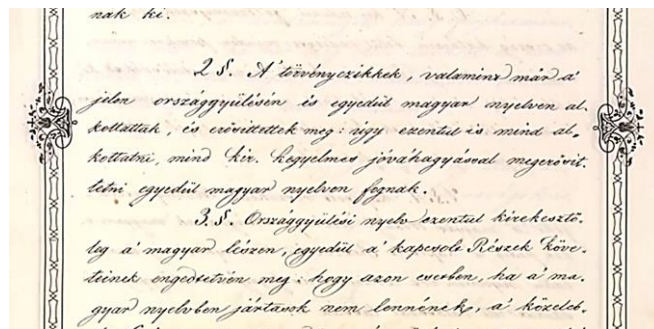 nak ki.
2 §. A' törvényczikkek, valamint már a'
jelen országgyülésén is egyedül magyar nyelven al-
kottattak, és erősittettek meg: úgy ezentul is mind al-
kottatni, mind kir. kegyelmes jóváhagyással megerősit-
tetni egyedül magyar nyelven fognak.
3. §. Országgyülési nyelv ezentul kirekesztő-
leg a' magyar lészen, egyedül a' kapcsolt Részek köve-
teinek engedtetvén meg: hogy azon esetben, ha a' ma-
gyar nyelvben jártasok nem lennének, a' közeleb-